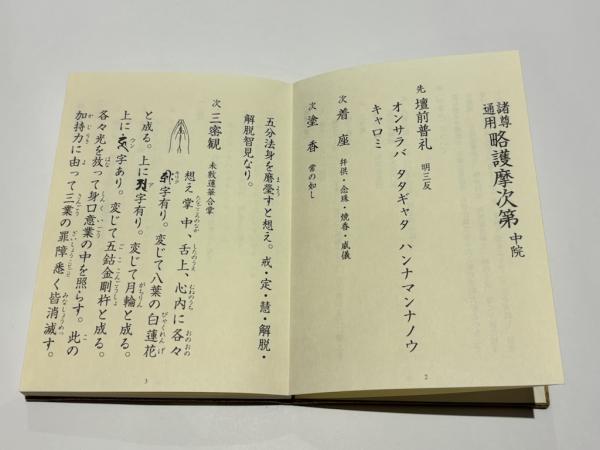 諸尊通用 略護摩次第 中院
先 壇前普礼 明三反
オンサラバ タタギャタ ハンナマンナノウ
キャロミ
次 着座 拝供・念珠・焼香・威儀
次 塗香 常の如し
2
五分法身を磨瑩すと想え。戒・定・慧・解脱・
解脱智見なり。
次 三密観 未敷蓮華合掌
想え掌中、舌上、心内に各々
字有り。変じて八葉の白蓮花
と成る。上に字有り。変じて月輪と成る。
上に字あり。変じて五鈷金剛杵と成る。
各々光を放って身口意業の中を照らす。此の
加持力に由って三業の罪障悉く皆消滅す。
3